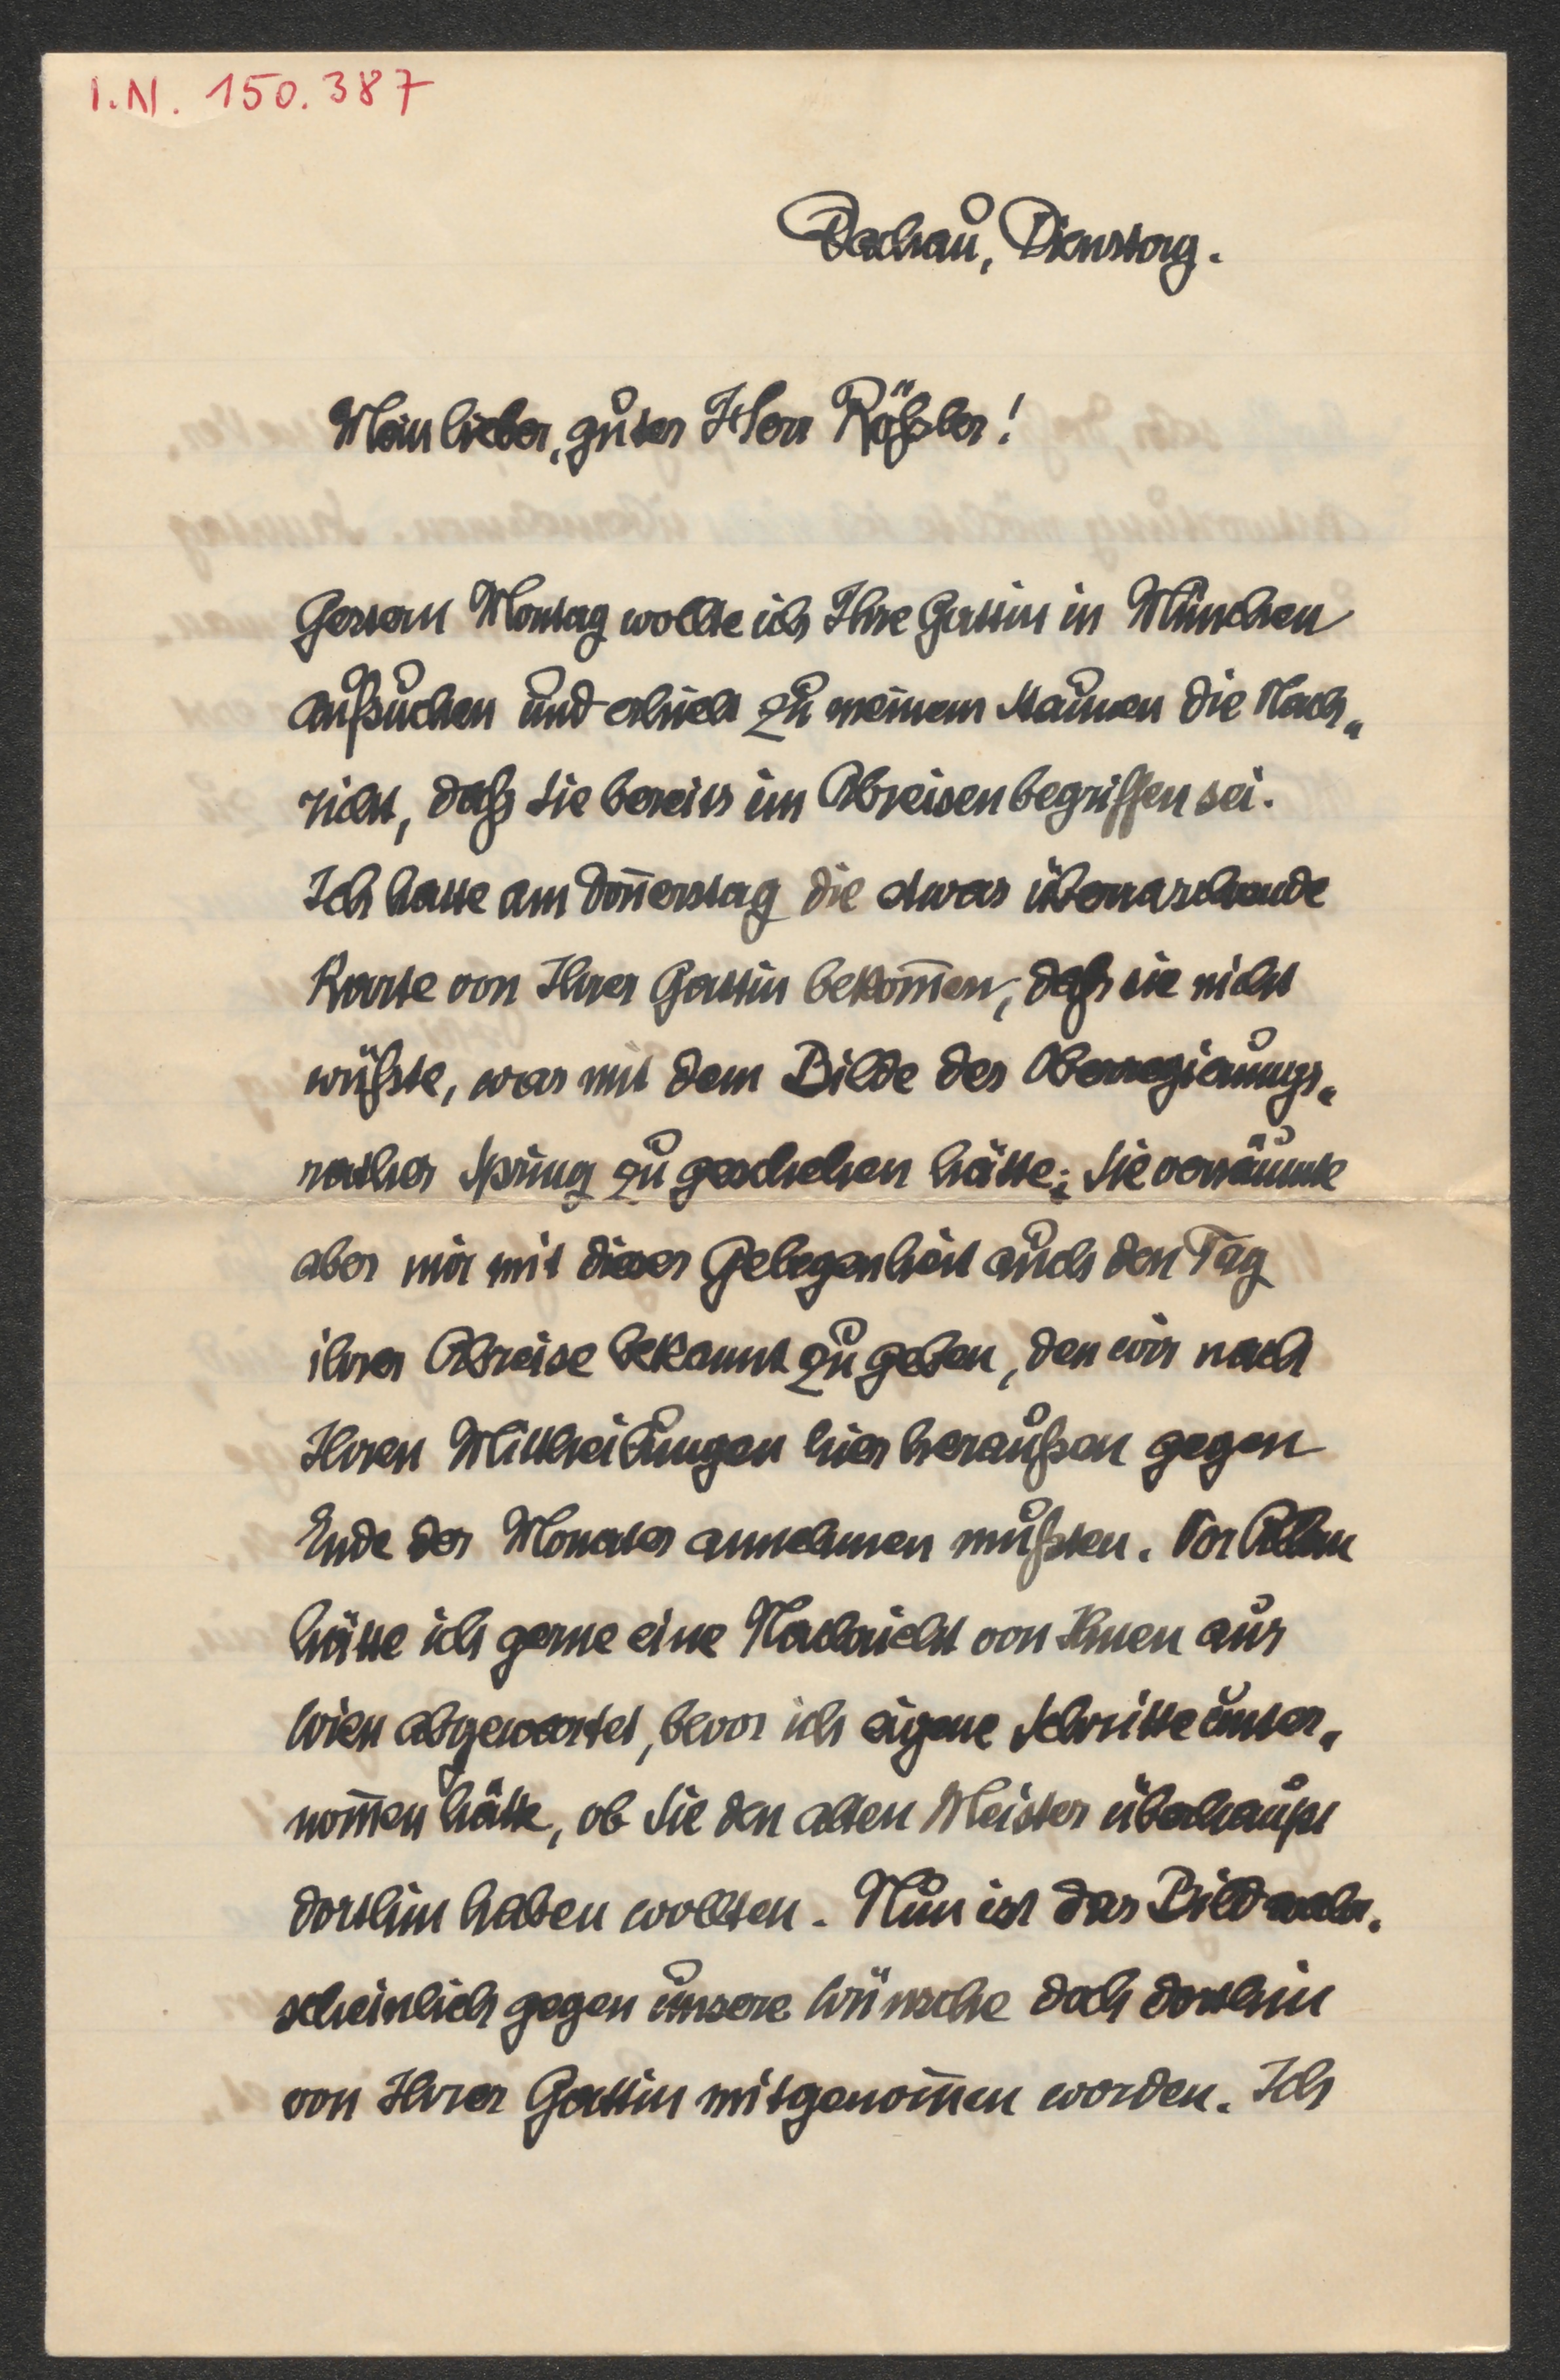 I.N. 150.387
Dachau, Dienstag.
Mein lieber, guter Herr Rößler!
Gestern Montag wollte ich Ihre Gattin in München
aufsuchen und erhielt zu meinem Staunen die Nach„
richt, daß sie bereits im Abreisen begriffen sei.
Ich hatte am Don̄erstag die etwas überraschende
Karte von Ihrer Gattin bekom̄en, daß sie nicht
wüßte, was mit dem Bilde des Oberregierungs„
rathes Spring zu geschehen hätte; Sie versäumte
aber mir mit dieser Gelegenheit auch den Tag
ihrer Abreise bekannt zu geben, den wir nach
Ihren Mittheilungen hier heraußen gegen
Ende des Monates annehmen mußten. Vor Allem
hätte ich gerne eine Nachricht von Ihnen aus
Wien abgewartet, bevor ich eigene Schritte unter„
nom̄en hätte, ob Sie den alten Meister überhaupt
dorthin haben wollten. Nun ist das Bild wahr„
scheinlich gegen unsere Wünsche doch dorthin
von Ihrer Gattin mitgenom̄en worden. Ich